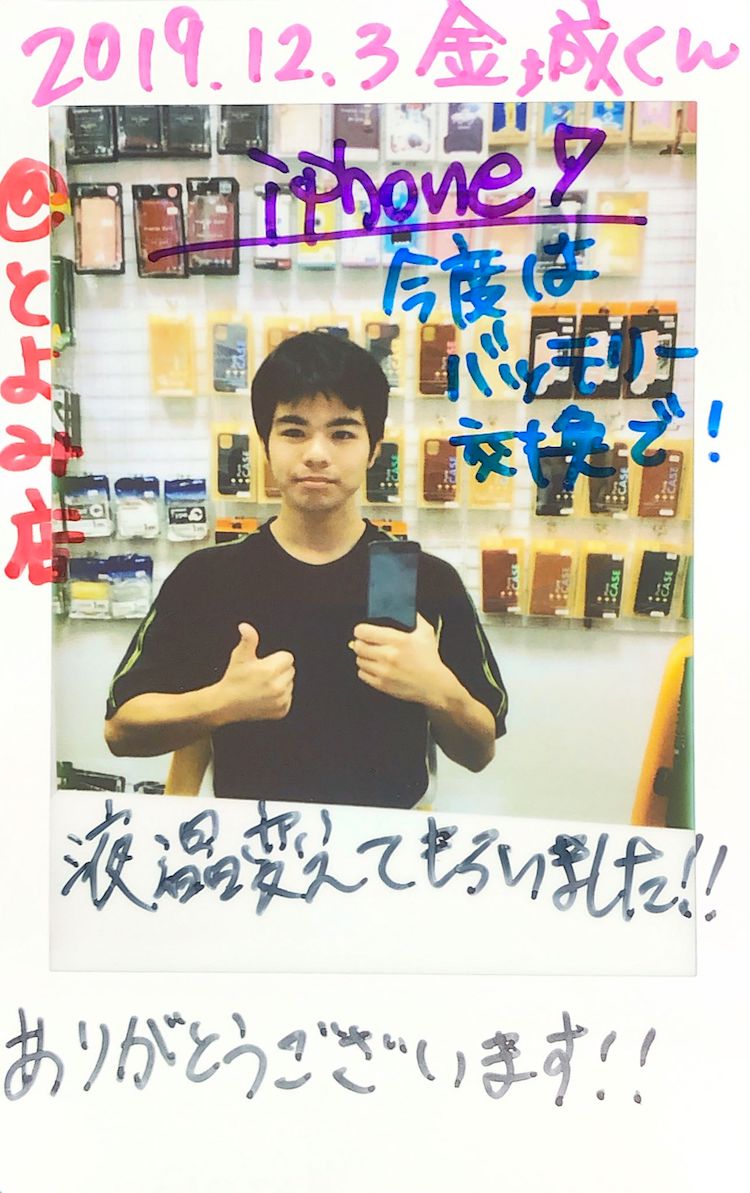 2019.12.3 金城くん
iphone7
今度は
バッテリー
交換で!
@とよみ店
CASE
CASE
CASE
CASE
CASE
液晶変えてもらいました!!
ありがとうございます!!